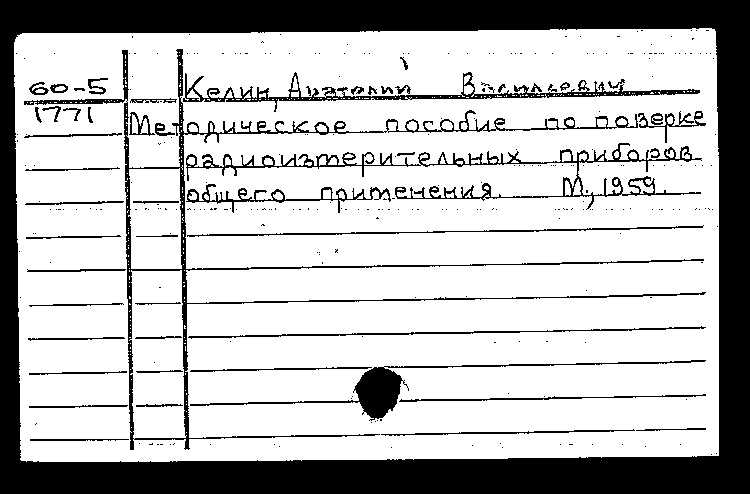 60-5 Келин, Анатолий Васильевич
1771 Методическое пособие по поверке
радиоизмерительных приборов
общего применения. М., 1959.